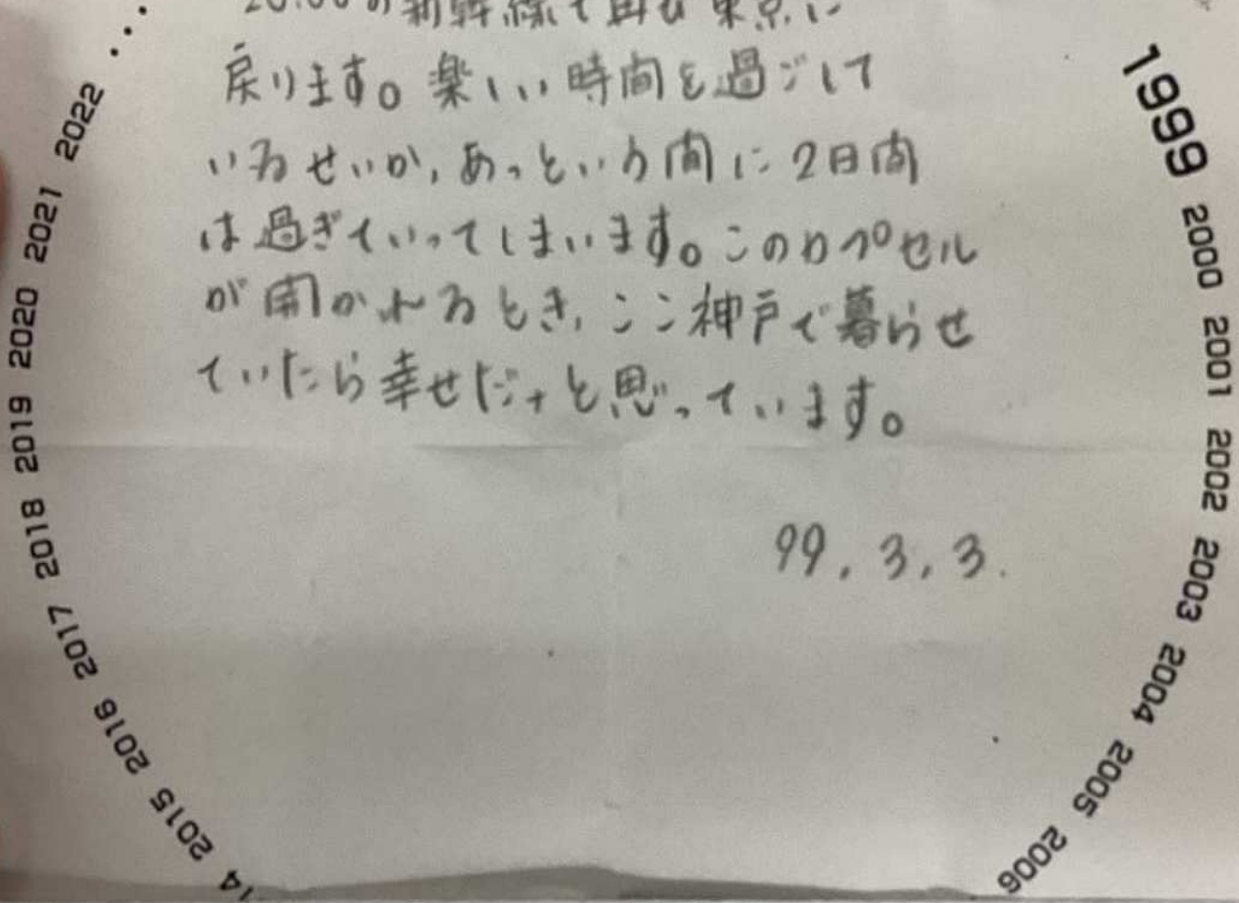 の新幹線で再び東京に
戻ります。楽しい時間を過ごして
いるせいか、あっという間に2日間
は過ぎていってしまいます。このカプセル
が開かれるとき、ここ神戸で暮らせ
ていたら幸せだナと思っています。
99.3.3.
1999 2000 2001 2002 2003 2004 2005 2006
14 2015 2016 2017 2018 2019 2020 2021 2022 ...